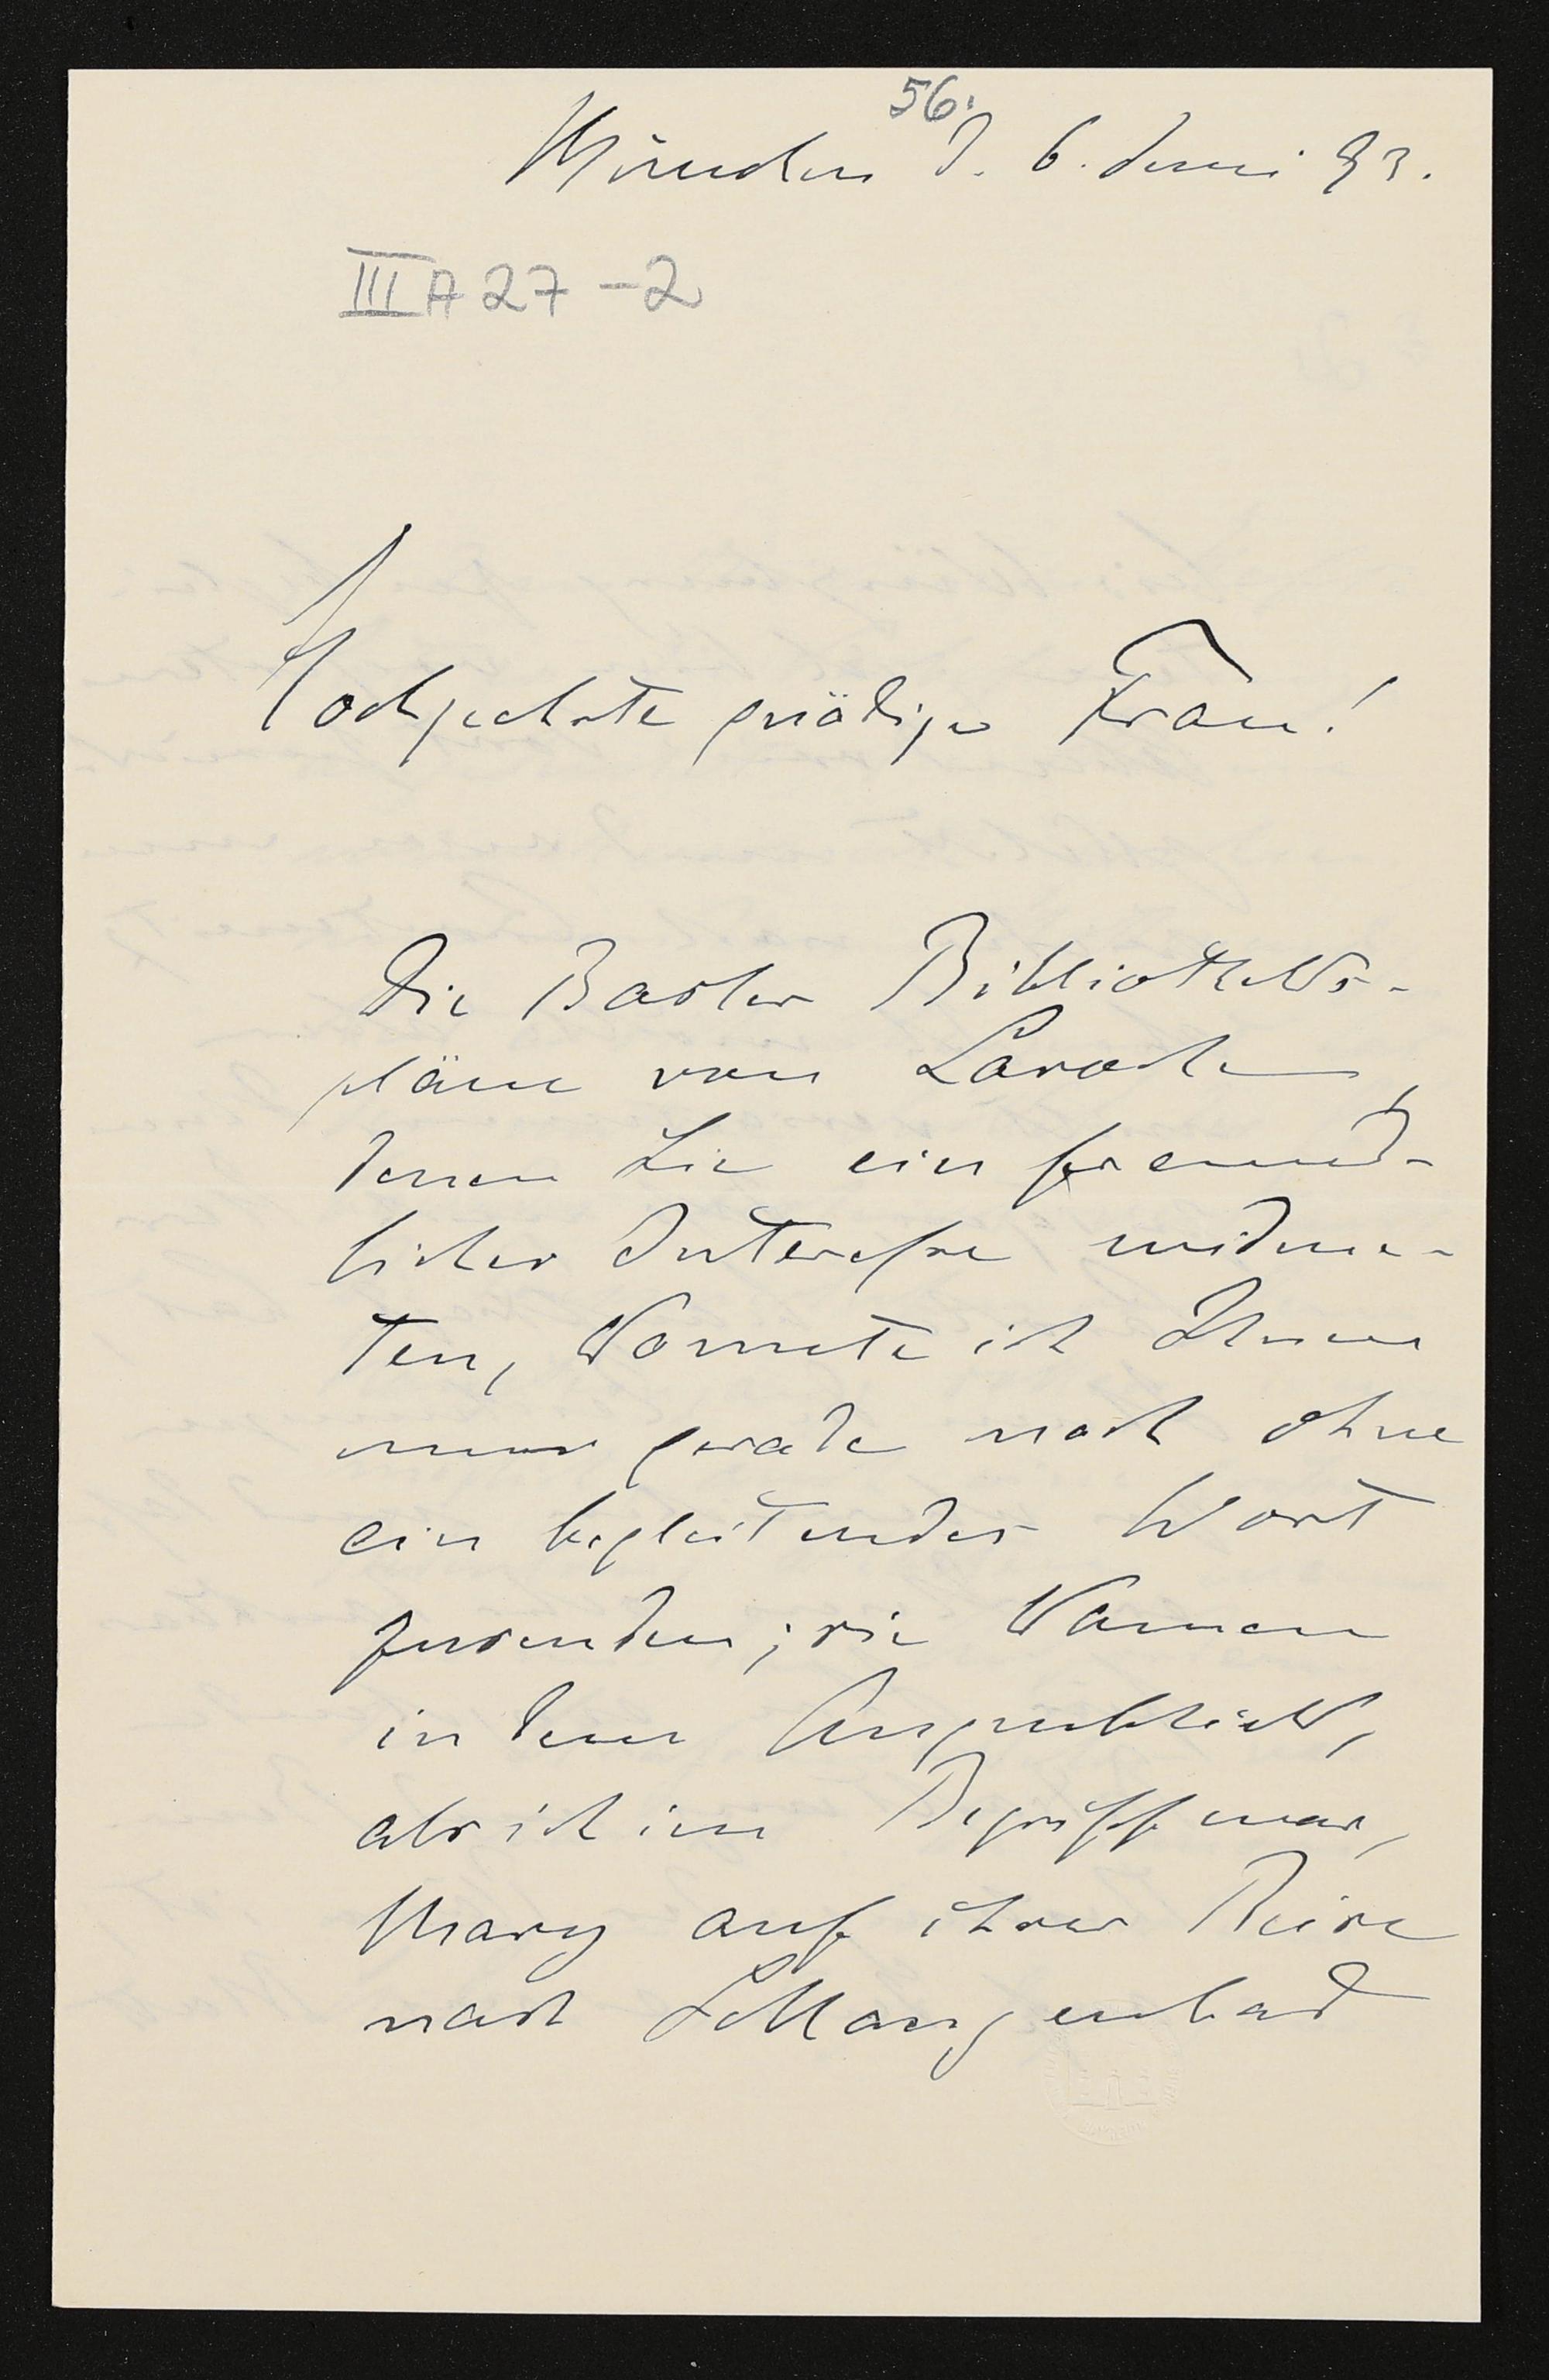 56.
München d. 6. Juni 93.
III A 27-2
Hochgeehrte gnädige Frau!
Die Basler Bibliotheks-
pläne von Laroche,
denen Sie ein freund-
liches Interesse widme-
ten, konnte ich Ihnen
nur gerade noch ohne
ein begleitendes Wort
zusenden; sie kamen
in dem Augenblick,
als ich im Begriff war,
Mary auf ihrer Reise
nach Schlangenbad